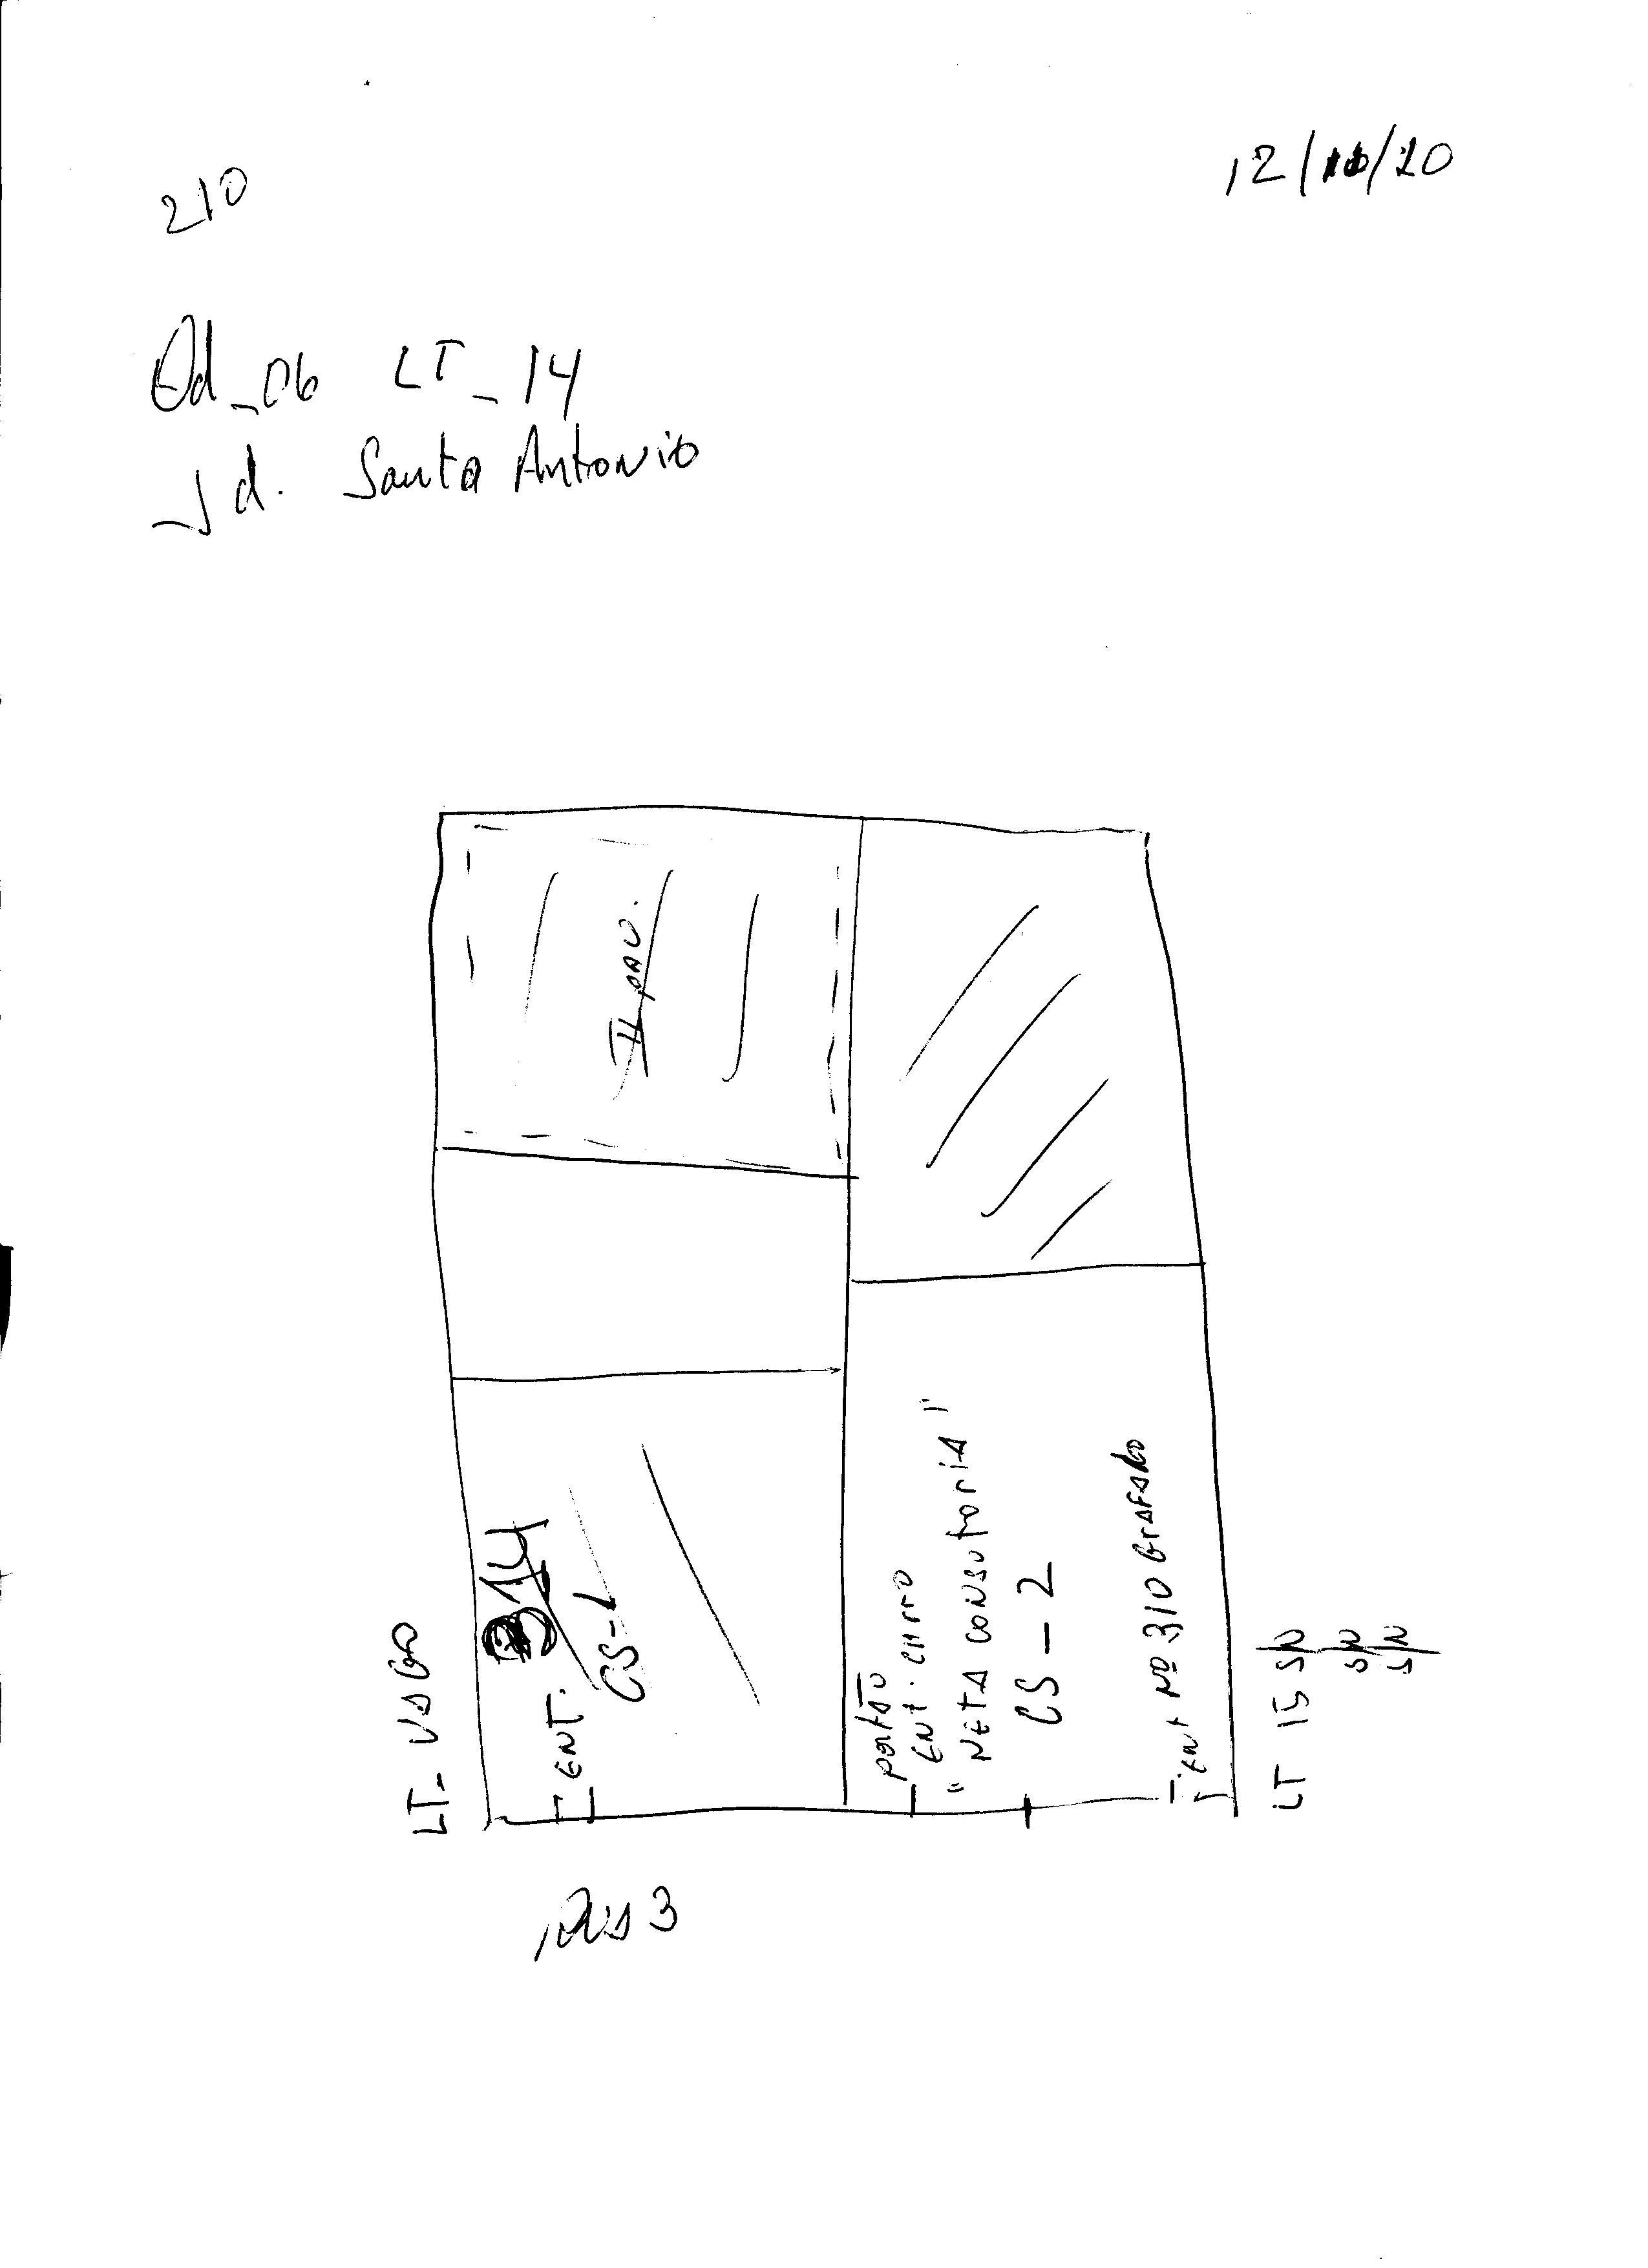 210
12/10/20
Qd_06 LT_14
Jd. Santo Antonio
II pav.
LT- VAGO
314
ENT.
CS-1
portão
Ent. carro
"META CONSUTORIA"
CS-2
ent Nº 310 Grafado
LT 15 S/N
S/N
S/N
Rua 3